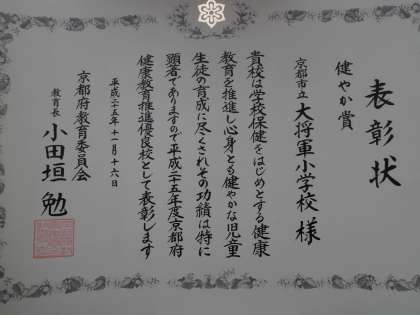 表彰状
健やか賞
京都市立 大将軍小学校 様
貴校は学校保健をはじめとする健康
教育を推進し心身とも健やかな児童
生徒の育成に尽くされその功績は特に
顕著でありますので平成二十五年度京都府
健康教育推進優良校として表彰します
平成二十五年十一月十六日
京都府教育委員会
教育長 小田垣 勉